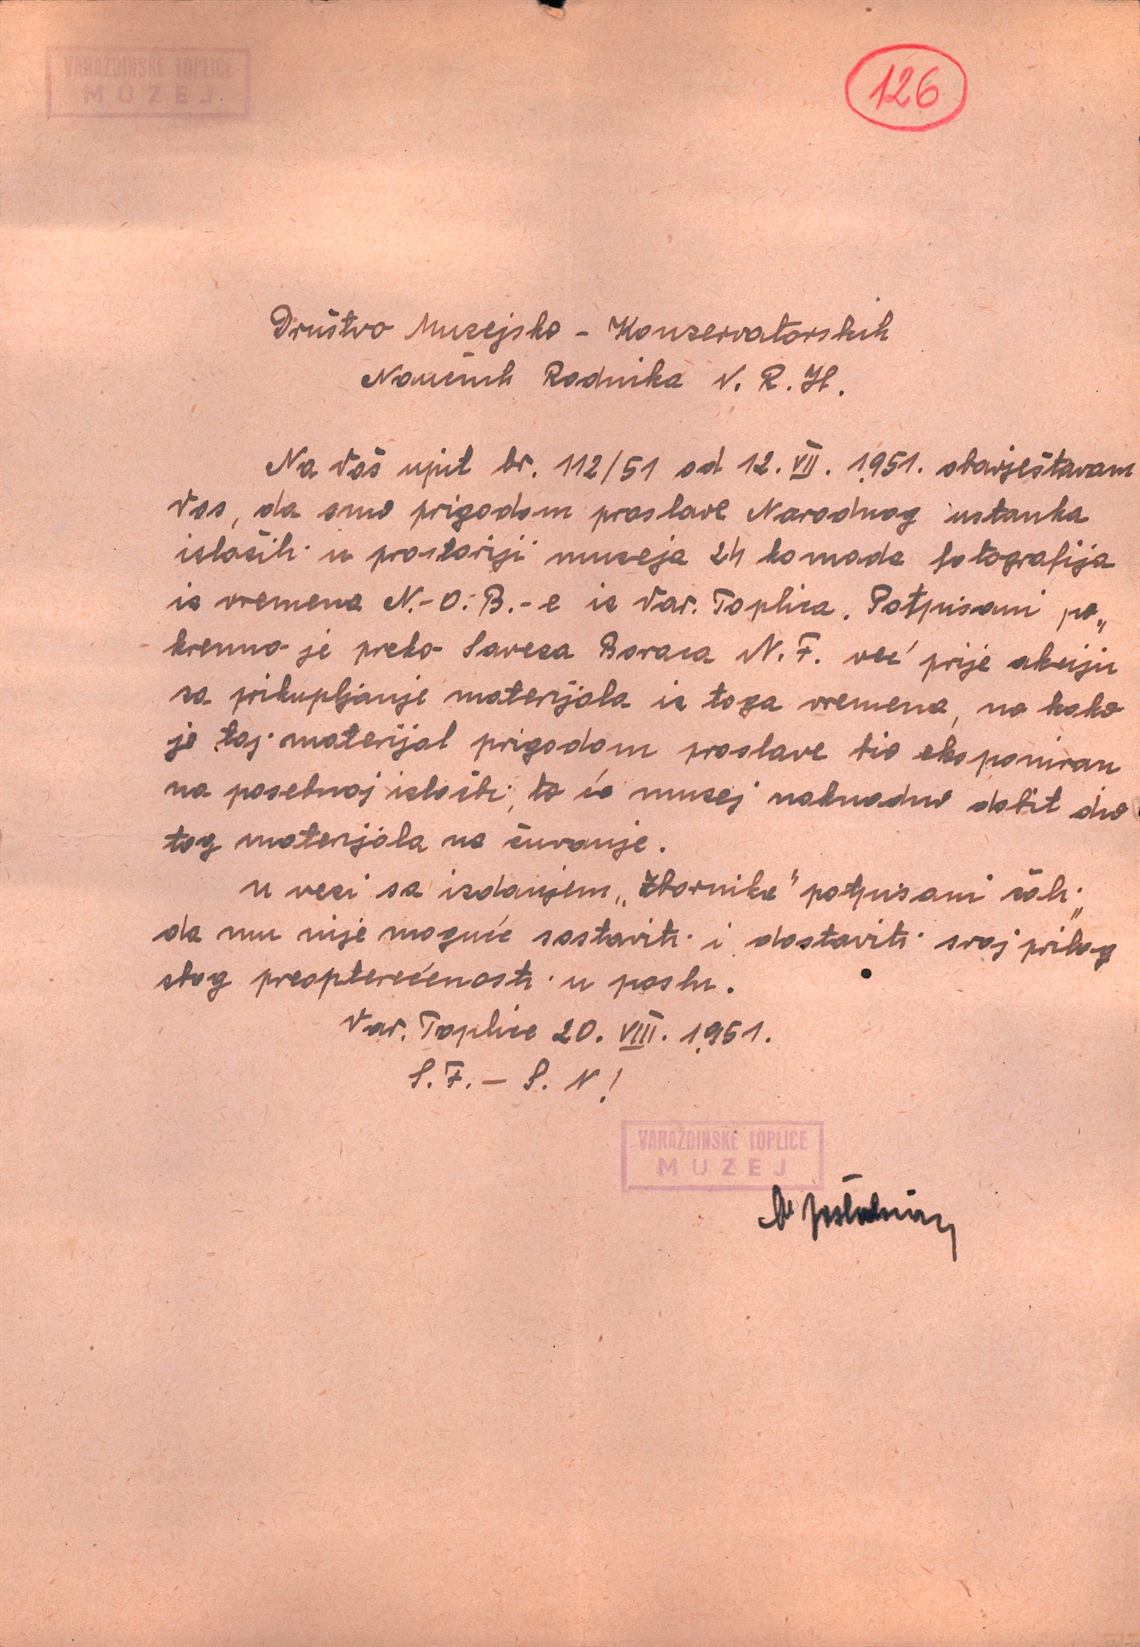 VARAŽDINSKE TOPLICE
MUZEJ
126
Društvo Muzejsko - Konzervatorskih
Naučnih Radnika N. R. H.
Na Vaš upit br. 112/51 od 12. VII. 1951. obavještavam
Vas, da smo prigodom proslave Narodnog ustanka
izložili u prostoriji muzeja 24 komada fotografija
iz vremena N.-O.-B.-e iz Var. Toplica. Potpisani po„
krenuo je preko Saveza Boraca N. F. već prije akciju
za prikupljanje materijala iz toga vremena, no kako
je taj materijal prigodom proslave bio eksponiran
na posebnoj izložbi, to će muzej naknadno dobit dio
tog materijala na čuvanje.
U vezi sa izdanjem „Zbornika" potpisani žali,
da mu nije moguće sastaviti i dostaviti svoj prilog
zbog preopterećenosti u poslu.
Var. Toplice 20. VIII. 1951.
S. F. - S. N!
VARAŽDINSKE TOPLICE
MUZEJ